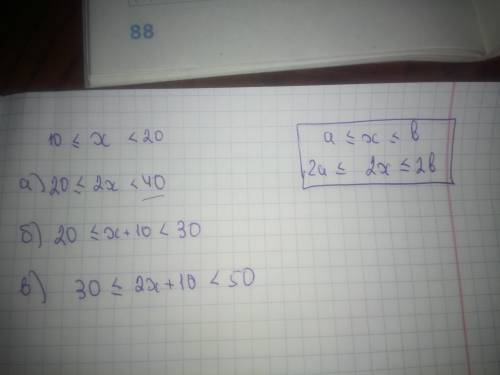 88
10 ≤ x < 20
а) 20 ≤ 2x < 40
б) 20 ≤ x+10 < 30
в) 30 ≤ 2x+10 < 50
a ≤ x ≤ b
2a ≤ 2x ≤ 2b